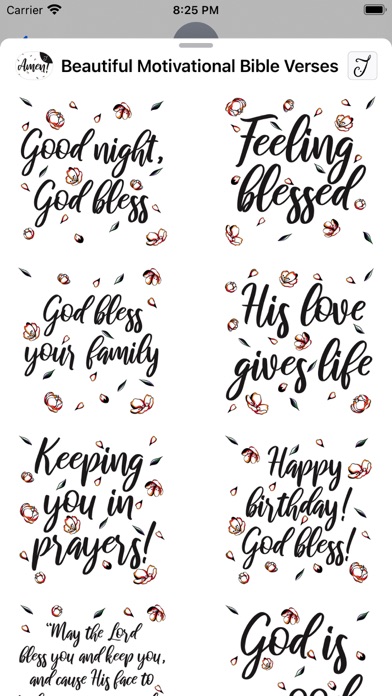 Carrier 8:25 PM
Amen! Beautiful Motivational Bible Verses
Good night,
God bless
Feeling
blessed
God bless
your family
His love
gives life
Keeping
you in
prayers!
Happy
birthday!
God bless!
“May the Lord
bless you and keep you,
and cause His face to
God is